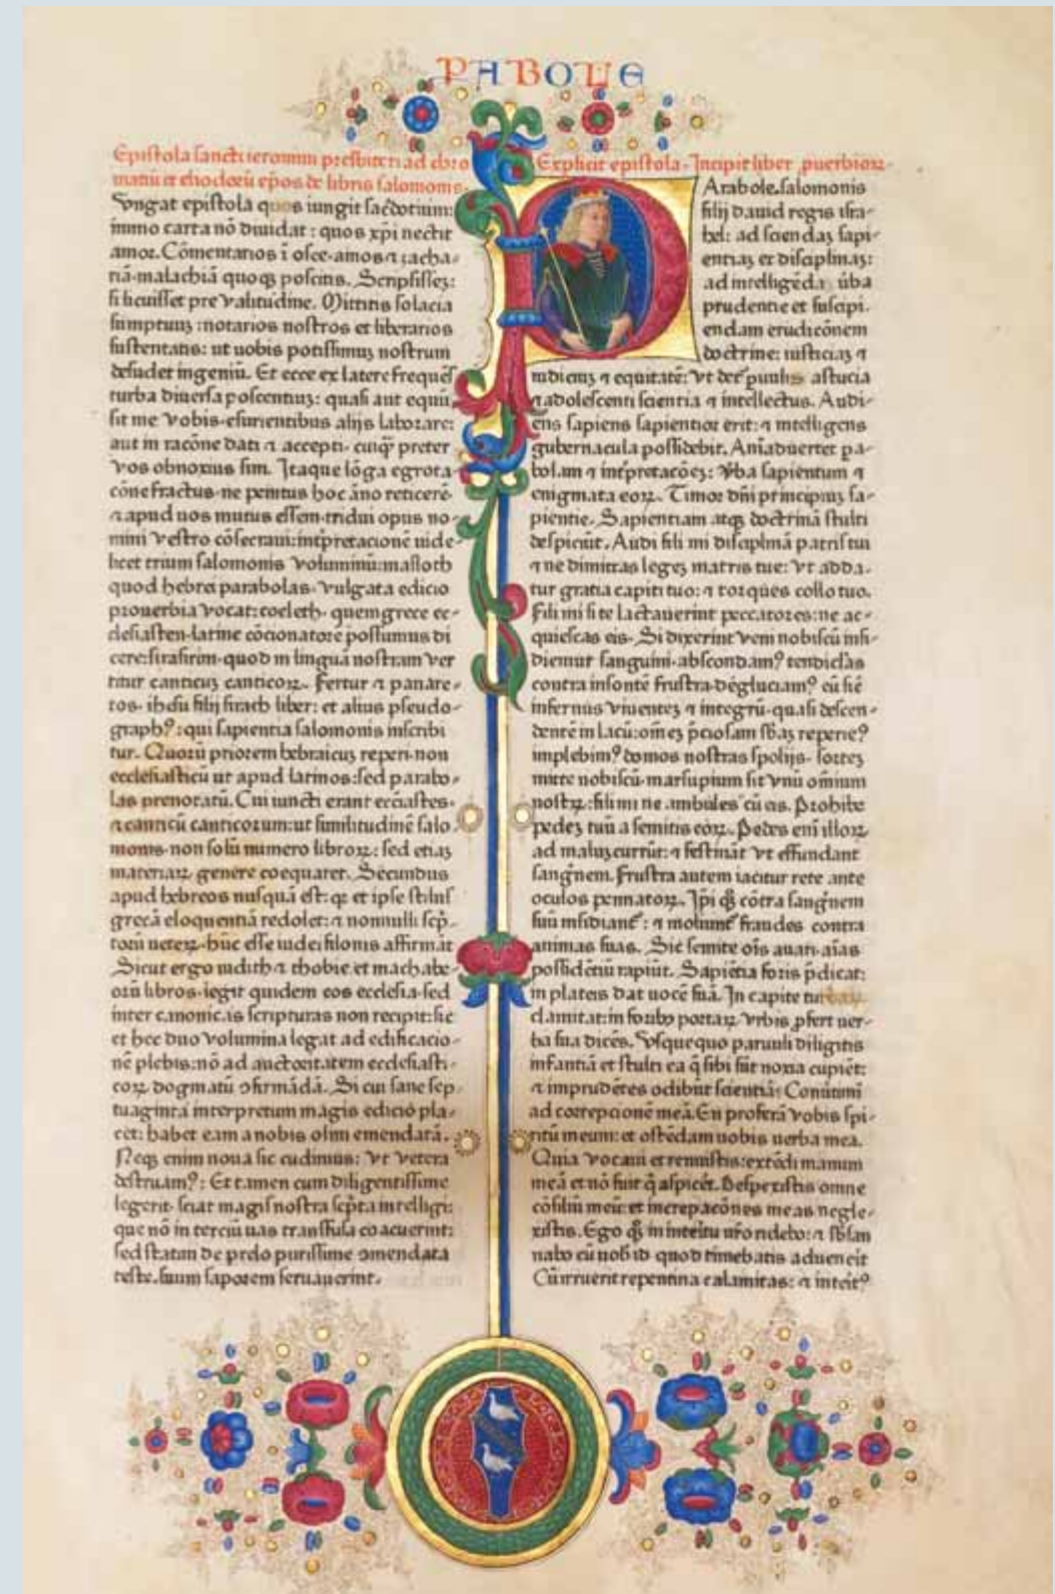 PABOLE
Epistola sancti ieronimi presbiteri ad chro
matiū et eliodorū ep̄os de libris salomonis.
Iungat epistola quos iungit sac̄dotium:
immo carta nō diuidat: quos xp̄i nectit
amor. Cōmentarios ī osee. amos ⁊ zacha-
riā. malachiā quoqꝫ poscitis. Scripsisseꝫ:
si licuisset pre valitudine. Mittitis solacia
sumptuuꝫ: notarios nostros et librarios
sustentatis: ut uobis potissimuꝫ nostrum
desudet ingeniū. Et ecce ex latere frequēs
turba diuersa poscentiuꝫ: quasi aut equū
sit me vobis esurientibus alijs laborare:
aut in racōne dati ⁊ accepti. cuiqꝫ preter
vos obnoxius sim. Itaque lōga egrota-
cōne fractus. ne penitus hoc āno reticerē
⁊ apud uos mutus essem. tridui opus no-
mini vestro cōsecraui: int̄pretacionē uide-
licet trium salomonis voluminū: masloth
quod hebrei parabolas. vulgata edicio
prouerbia vocat: coeleth. quem grece ec-
clesiasten. latine cōcionatorē possumus di
cere: sirasirim. quod in linguā nostram ver
titur canticuꝫ canticoꝝ. Fertur ⁊ panare-
tos. ih̄su filij sirach liber: et alius pseudo-
graphꝰ: qui sapientia salomonis inscribi
tur. Quorū priorem hebraicuꝫ reperi. non
ecclesiasticū ut apud latinos: sed parabo-
las prenotatū. Cui iuncti erant eccīastes.
⁊ canticū canticorum: ut similitudinē salo-
monis. non solū numero libroꝝ: sed etiaꝫ
materiaꝝ genere coequaret. Secundus
apud hebreos nusquā est: qꝛ et ipse stilus
grecā eloquentiā redolet: ⁊ nonnulli sc̄p-
torū ueterꝝ. hūc esse iudei filonis affirmāt
Sicut ergo iudith ⁊ thobie et machabe-
orū libros. legit quidem eos ecclesia. sed
inter canonicas scripturas non recipit: sic
et hec duo volumina legat ad edificacio-
nē plebis: nō ad auctoritatem ecclesiasti-
coꝝ dogmatū ꝯfirmādā. Si cui sane sep-
tuaginta interpretum magis edicio pla-
cet: habet eam a nobis olim emendatā.
Neqꝫ enim noua sic cudimus: vt vetera
destruamꝰ: Et tamen cum diligentissime
legerit. sciat magis nostra sc̄pta intelligi:
que nō in terciū uas transfusa coacuerint:
sed statim de prelo purissime ꝯmendata
teste. suum saporem seruauerint.
Explicit epistola. Incipit liber puerbioꝝ
Arabole. salomonis
filij dauid regis isra-
hel: ad sciendaꝫ sapi-
entiaꝫ et disciplinaꝫ:
ad intelligēda ūba
prudentie et suscipi.
endam erudicōnem
doctrine: iusticiaꝫ ⁊
iudiciuꝫ ⁊ equitatē: vt det̄ puulis astucia
⁊ adolescenti scientia ⁊ intellectus. Audi-
ens sapiens sapientior erit: ⁊ intelligens
gubernacula possidebit. Aniaduertet pa-
bolam ⁊ int̄pretacōeꝫ: v̄ba sapientum ⁊
enigmata eoꝝ. Timor dn̄i principiuꝫ sa-
pientie. Sapientiam atqꝫ doctrinā stulti
despiciūt. Audi fili mi disciplinā patris tui
⁊ ne dimittas legeꝫ matris tue: vt adda-
tur gratia capiti tuo: ⁊ torques collo tuo.
Fili mi si te lactauerint peccatores: ne ac-
quiescas eis. Si dixerint veni nobiscū insi-
diemur sanguini. abscondamꝰ tendiclās
contra insontē frustra. degluciamꝰ eū sic̄
infernus viuenteꝫ ⁊ integrū. quasi descen-
dentē in lacū: om̄eꝫ p̄ciosam sb̄aꝫ reperieꝰ
implebimꝰ domos nostras spolijs. sorteꝫ
mitte nobiscū. marsupium sit vnū omnium
nostꝝ: fili mi ne ambules cū eis. Prohibe
pedeꝫ tuū a semitis eoꝝ. Pedes enī illoꝝ
ad maluꝫ currūt: ⁊ festināt vt effundant
sang̃nem. Frustra autem iacitur rete ante
oculos pennatoꝝ. Ip̄i qꝫ cōtra sang̃nem
suū insidiant̄: ⁊ moliunt̄ fraudes contra
animas suas. Sic semite oīs auari. aīas
possidētiū rapiūt. Sapiētia foris p̄dicat:
in plateis dat uocē suā. In capite turbaꝝ
clamitat: in foribꝰ portaꝝ vrbis ꝓfert uer-
ba sua dicēs. Vsquequo paruuli diligitis
infantiā et stulti ea q̄ sibi sūt noxia cupiēt:
⁊ imprudētes odibūt scientiā: Conuertimi
ad correpcionē meā. En proferā vobis spi-
ritū meum: et ostēdam uobis uerba mea.
Quia vocaui et renuistis: extēdi manum
meā et nō fuit q̄ aspicēt. Despexistis omne
cōsiliū meū: et increpacōnes meas negle-
xistis. Ego qꝫ in interitu ur̄o ridebo: ⁊ sb̄san
nabo cū nobis id quod timebatis aduenerit
Cū irruerit repentina calamitas: ⁊ interitꝰ